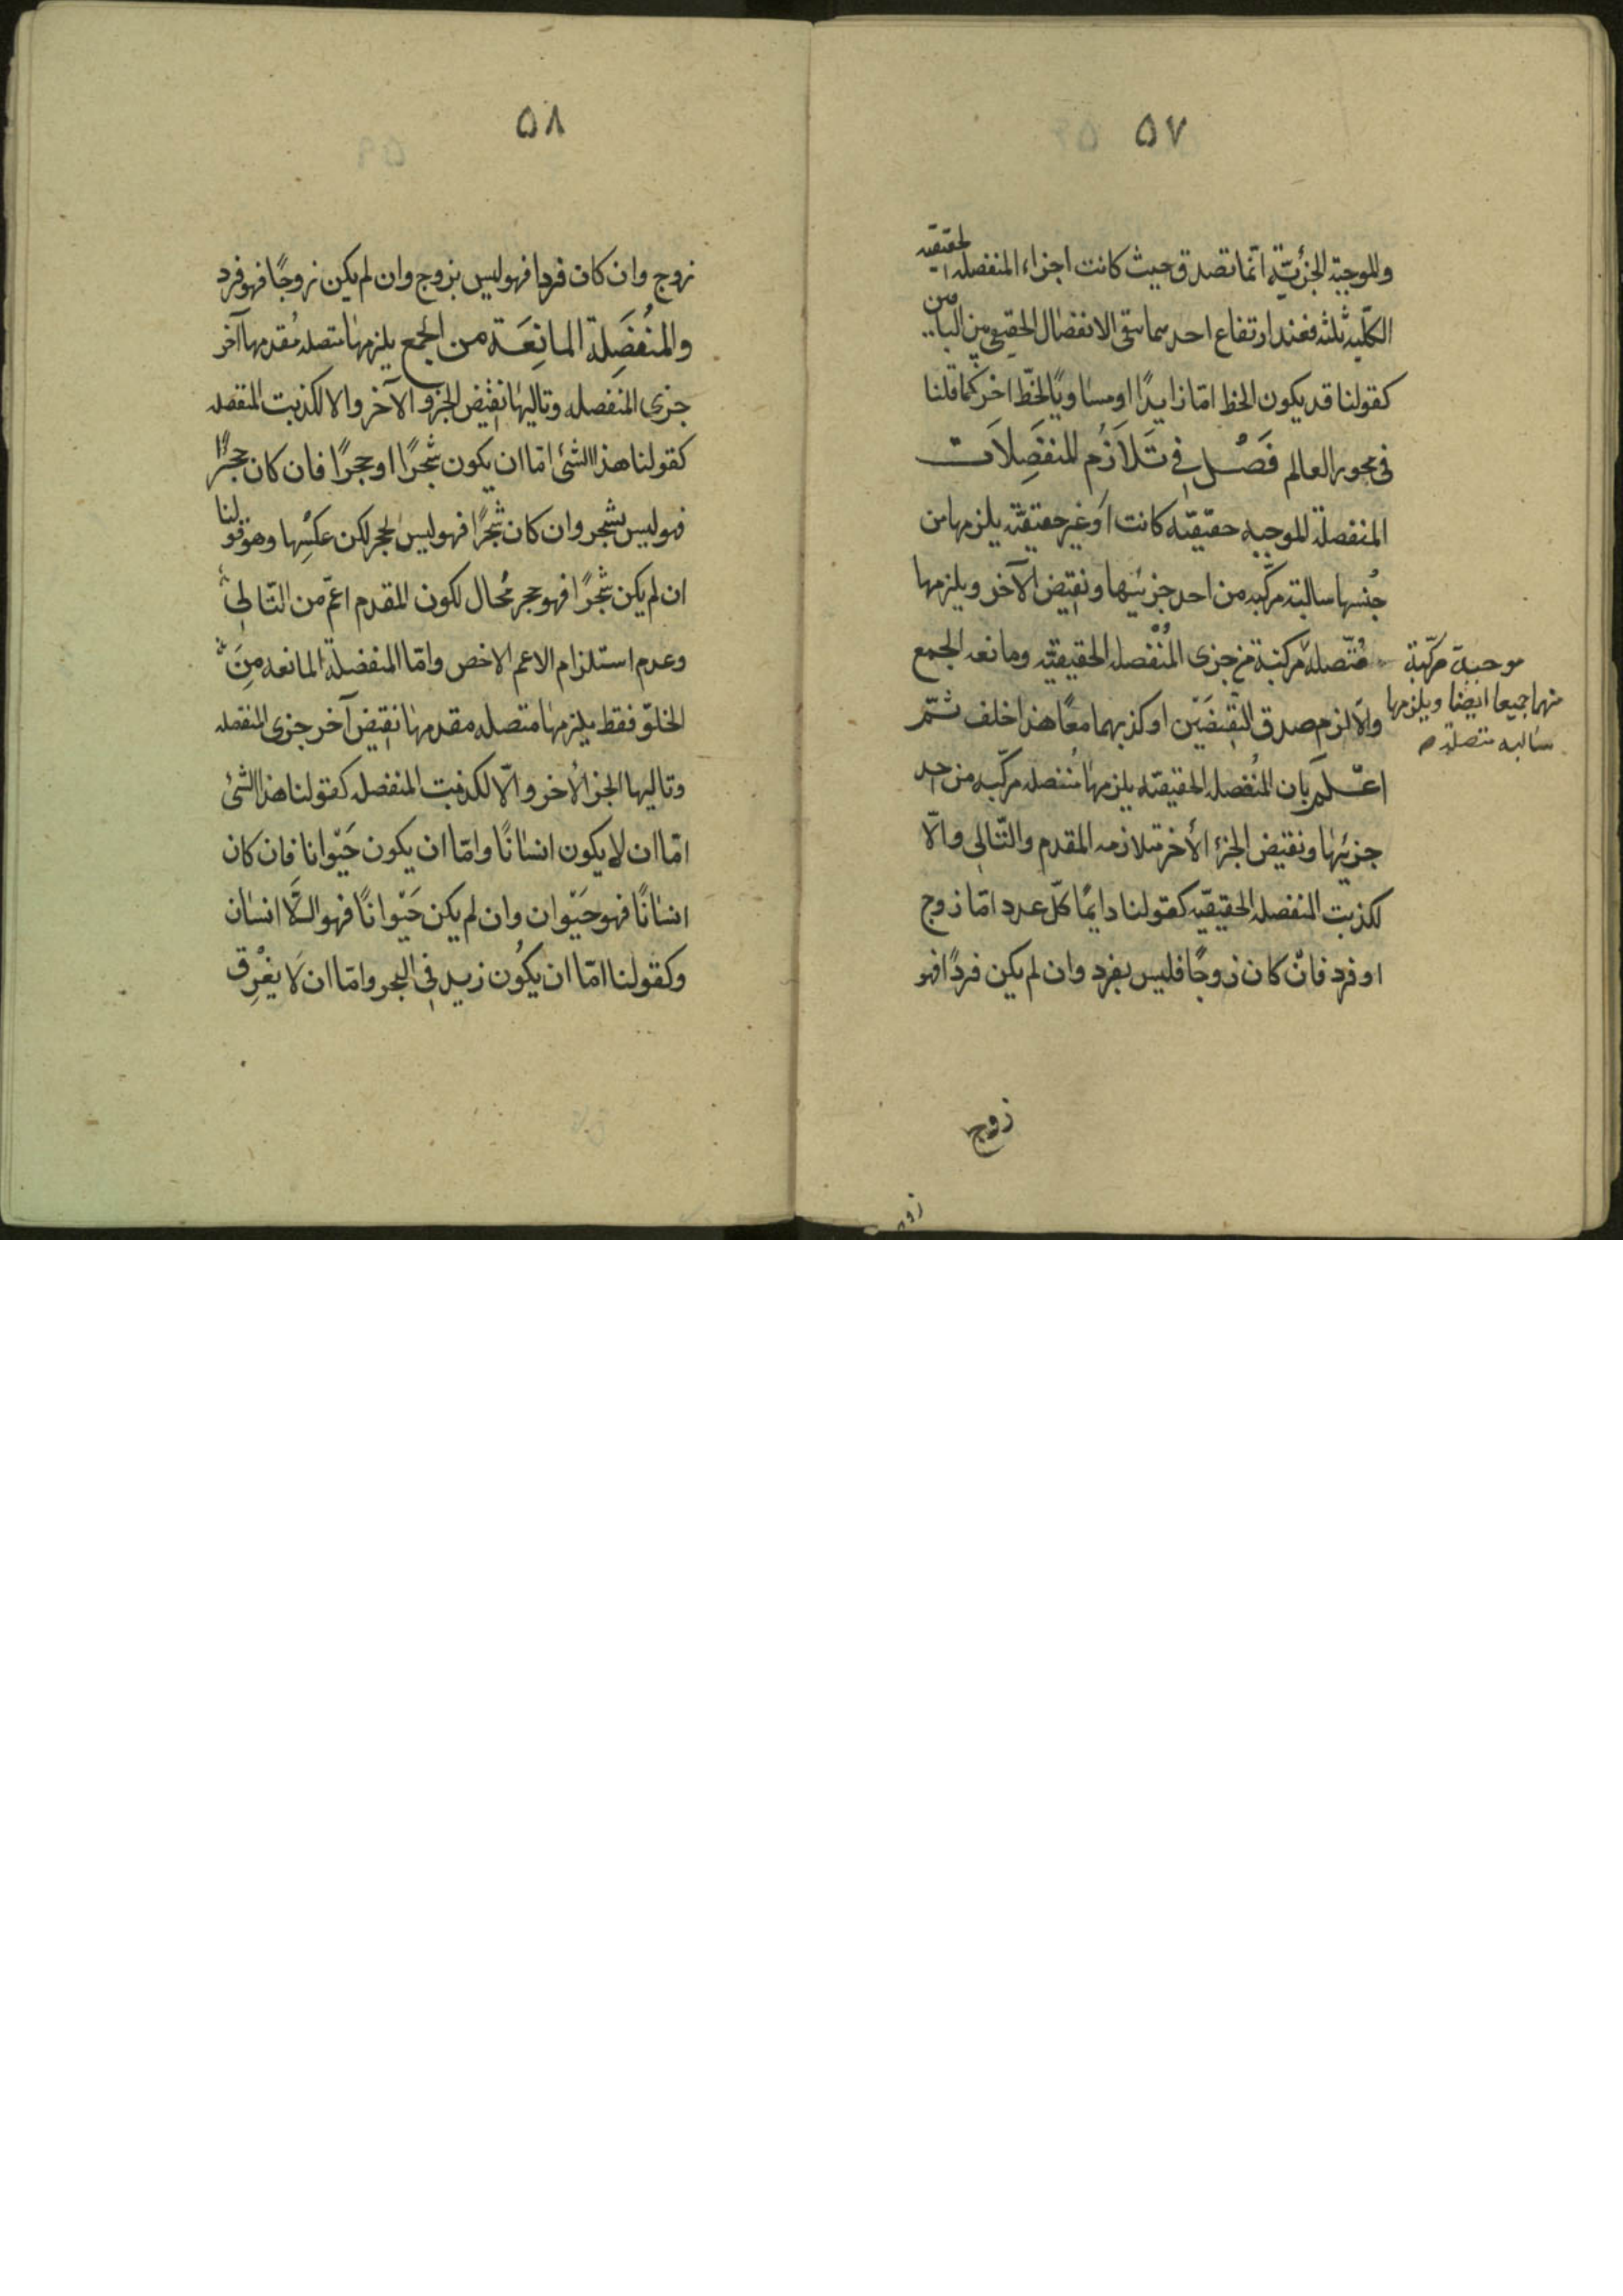 ۵۷
والموجبة الجزئيّة انّما تصدق حيث كانت اجزاء المنفصله الحقيقيه
الكلّيه ثلثه فعند ارتفاع احدهما يبقى الانفصال الحقيقى بين الباقين
كقولنا قد يكون الخط امّا زايدًا او مساويًا لخطّ اخر كما قلنا
فى محور العالم فَصْل فى تَلاَزُم المنفَصِلاَت
المنفصلة الموجبه حقيقيّه كانت اَوْ غير حقيقيّه يلزمها من
جنسها سالبة مركّبه من احد جزئيها ونقيض الآخر ويلزمها
مُتّصلة مركبة من جزى المُنْفصله الحقيقيّه ومانعه الجمع
والّا لزم صدق النّقيضَيْن او كذبهما معًا هذا خلف ثمّ
اعْلَم بَان المُنفصله الحقيقيّه يلزمها مُنفصله مركّبه من احد
جزئيها ونقيض الجزء الأخر متلازمه المقدم والتّالى والّا
لكذبت المنفصله الحقيقيّه كقولنا دايمًا كلّ عدد امّا زوج
او فرد فانْ كان زوجًا فليس بفرد وان لم يكن فردًا فهو
موجبة مركّبة
منهما جميعا ايضا ويلزمها
سالبه متصلة
زوج
۵۸
زوج وان كان فردا فهو ليس بزوج وان لم يكن زوجًا فهو فرد
والمنُفَصِلة المانِعَة من الجمع يلزمها متصله مُقدمها آخر
جزى المنفصله وتاليها نقيض الجزو الآخر والا لكذبت المنفصله
كقولنا هذا الشئ امّا ان يكون شجرًا او حجرًا فان كان حجرًا
فهو ليس بشجر وان كان شجرًا فهو ليس بحجر لكن عكسها وهو قولنا
ان لم يكن شجرًا فهو حجر مُحال لكون المقدم اعمّ من التّالى
وعدم استلزام الاعم الاخص وامّا المنفصلة المانعه مِنَ
الخلوّ فقط يلزمها متصله مقدمها نقيض آخر جزى المنفصله
وتاليها الجزا الأخر والّا لكذبت المنفصله كقولنا هذا الشئ
امّا ان لا يكون انسانًا وامّا ان يكون حَيْوانا فان كان
انسانًا فهو حَيْوان وان لم يكن حَيْوانًا فهو الّا انسان
وكقولنا امّا ان يكُون زيد فى البحر وامّا ان لَا يغْرِق